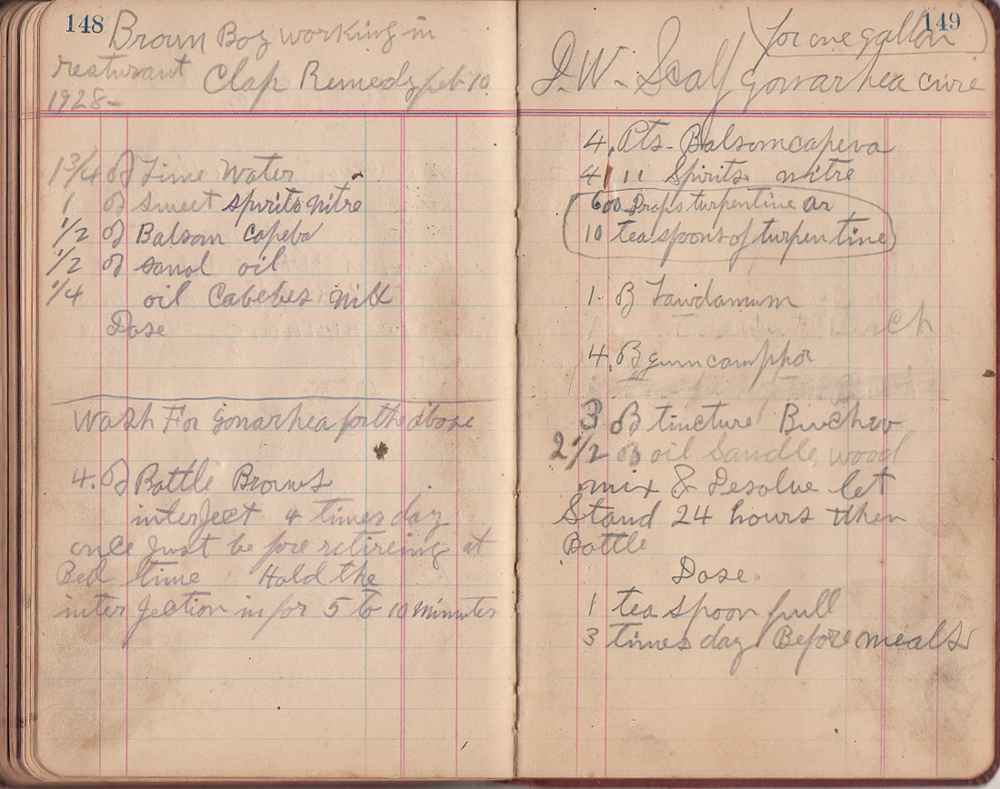 148
Brown Boy working in
resturant Clap Remedy Feb 10
1928-
1 3/4 ℥ Lime Water
1 ℥ Sweet spirits nitre
1/2 ℥ Balsom Capeba
1/2 ℥ sanol oil
1/4 oil Cabebes mix
Dose
Wash For gonarhea for the above
4. ℥ Bottle Browns
interject 4 times day
once Just before retireing at
Bed time Hold the
interjection in for 5 to 10 minutes
149
for one gallon
J.W. Scalf gonarhea cure
4. Pts. Balsom capeva
4 " Spirits nitre
600 Drops turpentine or
10 teaspoons of turpentine
1. ℥ Lawdamum
4. ℥ gum camphor
3 ℥ tincture Buchev
2 1/2 ℥ oil Sandle wood
mix & Desolve let
Stand 24 hours then
Bottle
Dose.
1 tea spoon full
3 times day Before meals